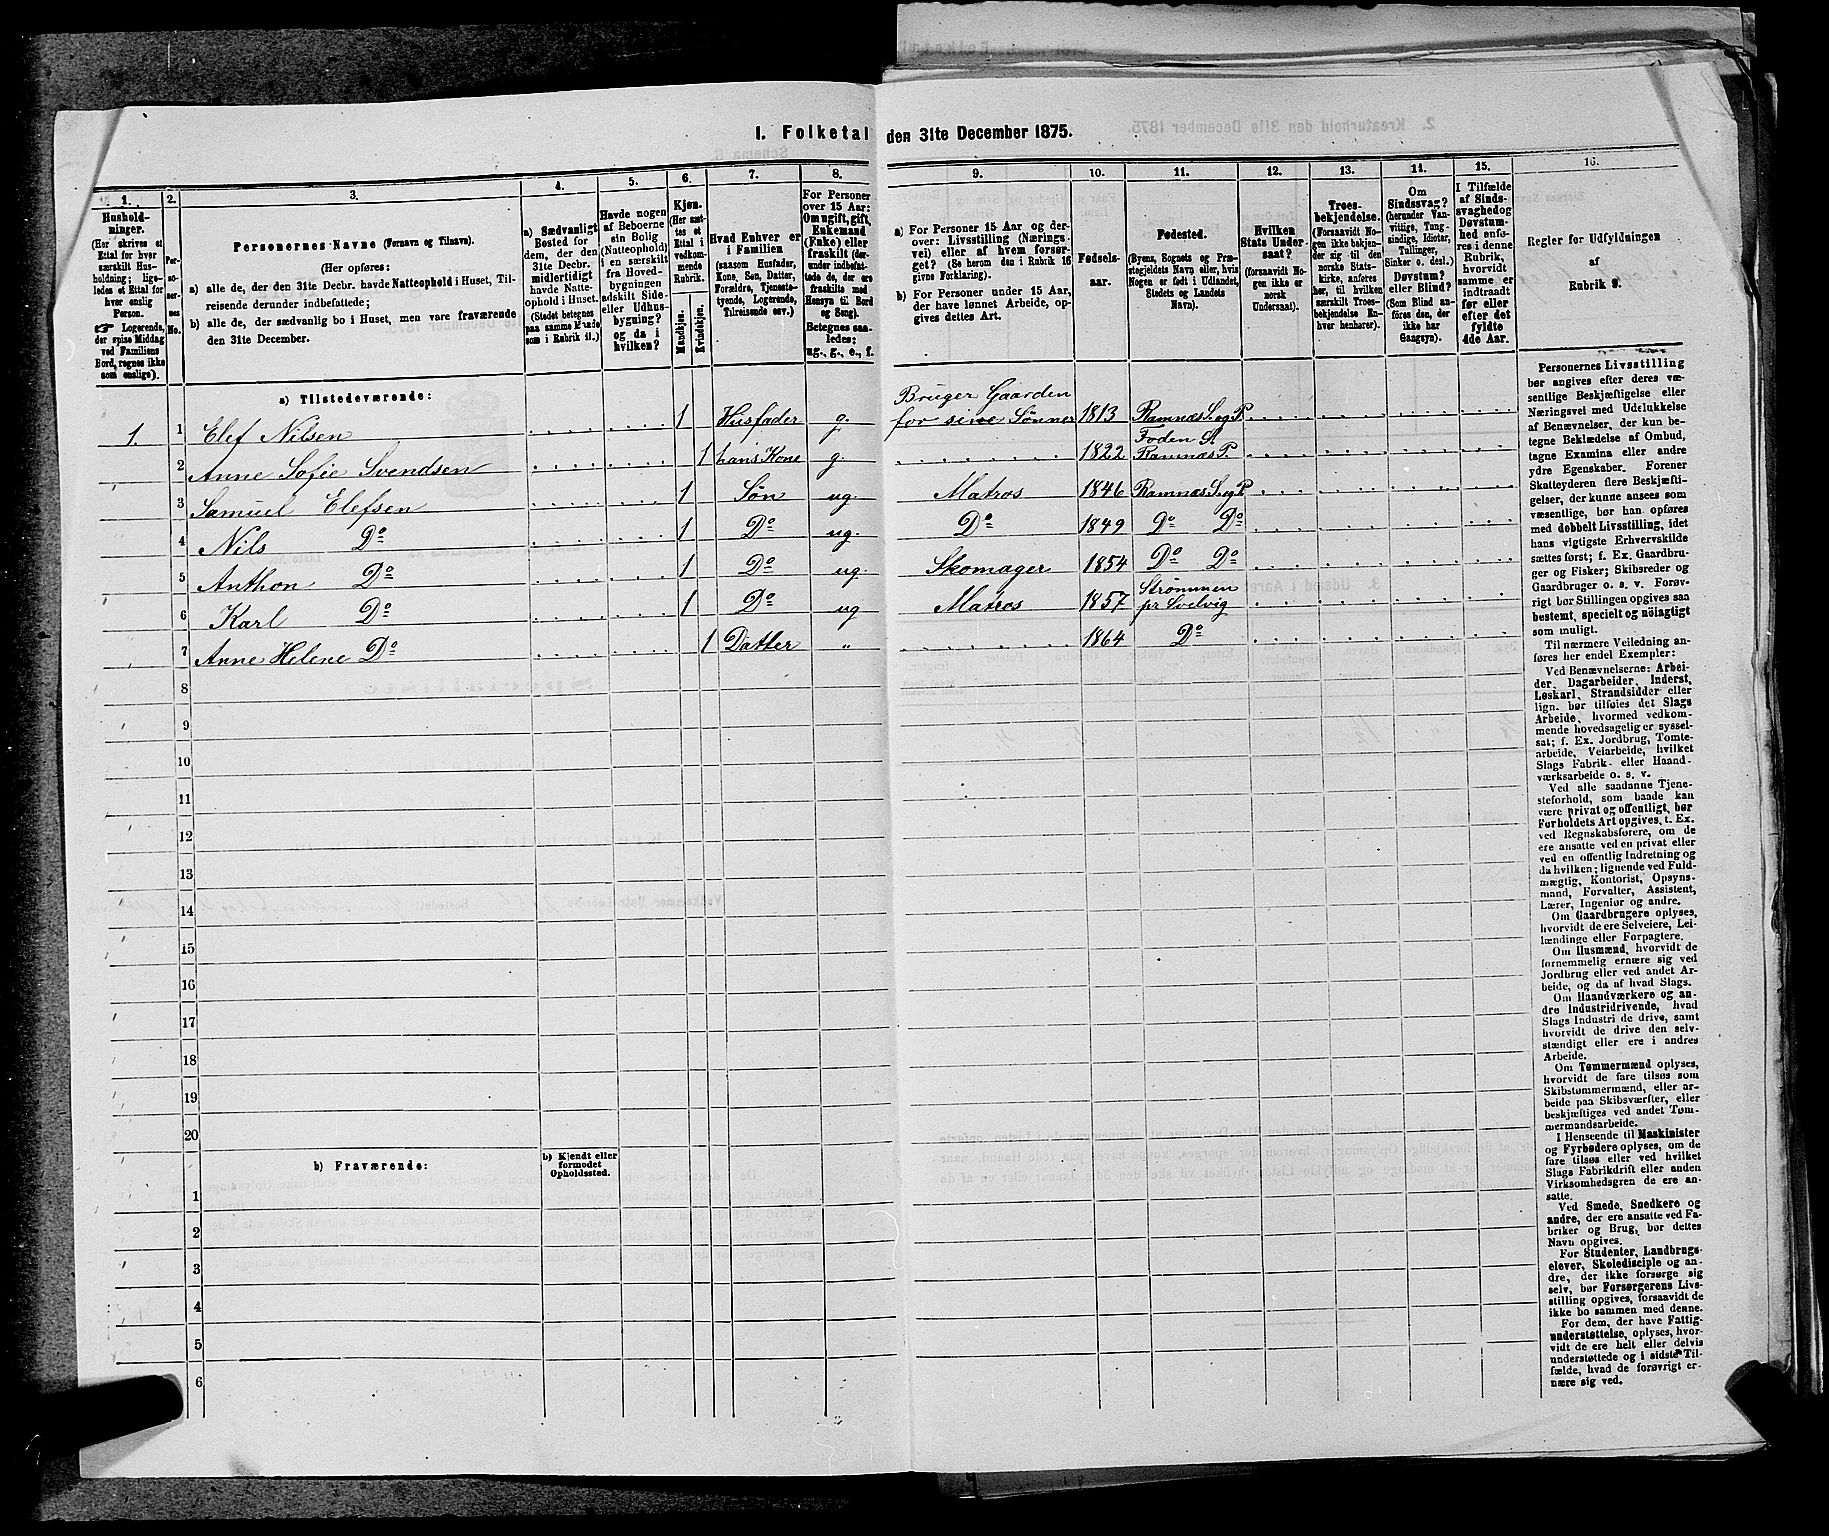 I. Folketal den 31te December 1875.
1.
Hushold-
ninger.
(Her skrives et
Ettal for hver
særskilt Hus-
holdning; lige-
ledes et Ettal for
hver enslig
Person.
Logerende,
der spise Middag
ved Familiens
Bord, regnes ikke
som enslige).
2.
Per-
so-
ner-
nes
No.
3.
Personernes Navne (Fornavn og Tilnavn).
(Her opføres:
a) alle de, der den 31te Decbr. havde Natteophold i Huset, Til-
reisende derunder indbefattede;
b) alle de, der sædvanlig bo i Huset, men vare fraværende
den 31te December.
4.
a) Sædvanligt
Bosted for
dem, der den
31te Decbr.
midlertidigt
havde Natte-
ophold i Huset.
(Stedet betegnes
paa samme Maade
som i Rubrik 11.)
5.
Havde nogen
af Beboerne
sin Bolig
(Natteophold)
i en særskilt
fra Hoved-
bygningen
adskilt Side-
eller Udhus-
bygning?
og da i
hvilken?
6.
Kjøn.
(Her sæt-
tes et
Ettal i
vedkom-
mende
Rubrik.
Mandkjøn.
Kvindekjøn.
7.
Hvad Enhver er
i Familien
(saasom Husfader,
Kone, Søn, Datter,
Forældre, Tjeneste-
tyende, Logerende,
Tilreisende osv.)
8.
For Personer
over 15 Aar:
Om ugift, gift,
Enkemand
(Enke) eller
fraskilt (der-
under indbefat-
tede de, der ere
fraskilte med
Hensyn til Bord
og Seng).
Betegnes saa-
ledes;
ug., g., e., f.
9.
a) For Personer 15 Aar og der-
over: Livsstilling (Nærings-
vei) eller af hvem forsør-
get? (Se herom den i Rubrik 16
givne Forklaring).
b) For Personer under 15 Aar,
der have lønnet Arbeide, op-
gives dettes Art.
10.
Fødsels-
aar.
11.
Fødested.
(Byens, Sognets og Præ-
stegjeldets Navn eller, hvis
Nogen er født i Udlandet,
Stedets og Landets
Navn).
12.
Hvilken
Stats Under-
saat?
(forsaavidt No-
gen ikke er
norsk
Undersaat).
13.
Troes-
bekjendelse.
(Forsaavidt No-
gen ikke bekjen-
der sig til den
norske Stats-
kirke, anføres
her, til hvilken
særskilt Troes-
bekjendelse En-
hver henhører).
14.
Om
Sindssvag?
(herunder Van-
vittige, Tung-
sindige, Idioter,
Tullinger,
Sinker o. desl.)
Døvstum?
eller Blind?
(Som Blind an-
føres den, der
ikke har
Gangsyn).
15.
I Tilfælde
af Sinds-
svaghed og
Døvstum-
hed anfø-
res i denne
Rubrik,
hvorvidt
samme er
indtraadt
før eller
efter det
fyldte
4de Aar.
16.
Regler for Udfyldningen
af
Rubrik 9.
a) Tilstedeværende:
1. 1 Elef Nilsen 1 Husfader g. Bruger Gaarden for sine Sønner 1813 Ramnæs S. og P.
2 Anne Sofie Svendsen 1 hans Kone g. 1822 Foden S. Ramnæs P.
3 Samuel Elefsen 1 Søn ug. Matros 1846 Ramnæs S. og P
4 Nils Do 1 Do ug. Do 1849 Do Do
5 Anthon Do 1 Do ug. Skomager 1854 Do Do
6 Karl Do 1 Do ug Matros 1857 Strømmen pr Svelvig
7 Anne Helene Do 1 Datter " 1864 Do
8
9
10
11
12
13
14
15
16
17
18
19
20
b) Fraværende:
b) Kjendt eller
formodet
Opholdssted.
1
2
3
4
5
6
Personernes Livsstilling
bør angives efter deres væ-
sentlige Beskjæftigelse eller
Næringsvei med Udelukkelse
af Benævnelser, der kun be-
tegne Beklædelse af Ombud,
tagne Examina eller andre
ydre Egenskaber. Forener
Skatteyderen flere Beskjæfti-
gelser, der kunne ansees som
væsentlige, bør han opføres
med dobbelt Livsstilling, idet
hans vigtigste Erhvervskilde
sættes først; f. Ex. Gaardbru-
ger og Fisker; Skibsreder og
Gaardbruger o. s. v. Forøv-
rigt bør Stillingen opgives saa
bestemt, specielt og nøiagtigt
som muligt.
Til nærmere Veiledning an-
føres her endel Exempler:
Ved Benævnelserne: Arbei-
der, Dagarbeider, Inderst,
Løskarl, Strandsidder eller
lign. bør tilføies det Slags
Arbeide, hvormed vedkom-
mende hovedsagelig er syssel-
sat; f. Ex. Jordbrug, Tomte-
arbeide, Veiarbeide, hvilket
Slags Fabrik- eller Haand-
værksarbeide o. s. v.
Ved alle saadanne Tjene-
steforhold, som baade kan
være privat og offentligt, bør
Forholdets Art opgives, t. Ex.
ved Regnskabsførere, om de
ere ansatte ved en privat eller
ved en offentlig Indretning og
da hvilken; lignende ved Fuld-
mægtig, Kontorist, Opsyns-
mand, Forvalter, Assistent,
Lærer, Ingeniør og andre.
Om Gaardbrugere oplyses,
hvorvidt de ere Selveiere, Lei-
lændinge eller Forpagtere.
Om Husmænd, hvorvidt de
fornemmelig ernære sig ved
Jordbrug eller ved andet Ar-
beide, og da af hvad Slags.
Om Haandværkere og an-
dre Industridrivende, hvad
Slags Industri de drive, samt
hvorvidt de drive den selv-
stændigt eller ere i andres
Arbeide.
Om Tømmermænd oplyses,
hvorvidt de fare tilsøs som
Skibstømmermænd, eller ar-
beide paa Skibsværfter, eller
beskjæftiges ved andet Tøm-
mermandsarbeide.
I Henseende til Maskinister
og Fyrbødere oplyses, om de
fare tilsøs eller ved hvilket
Slags Fabrikdrift eller anden
Virksomhedsgren de ere an-
satte.
Ved Smede, Snedkere og
andre, der ere ansatte ved Fa-
briker og Brug, bør dettes
Navn opgives.
For Studenter, Landbrugs-
elever, Skoledisciple og an-
dre, der ikke forsørge sig
selv, bør Forsørgerens Livs-
stilling opgives, forsaavidt de
ikke bo sammen med denne.
For dem, der have Fattig-
understøttelse, oplyses, hvor-
vidt de ere helt eller delvis
understøttede og i sidste Til-
fælde, hvad de forøvrigt er-
nære sig ved.